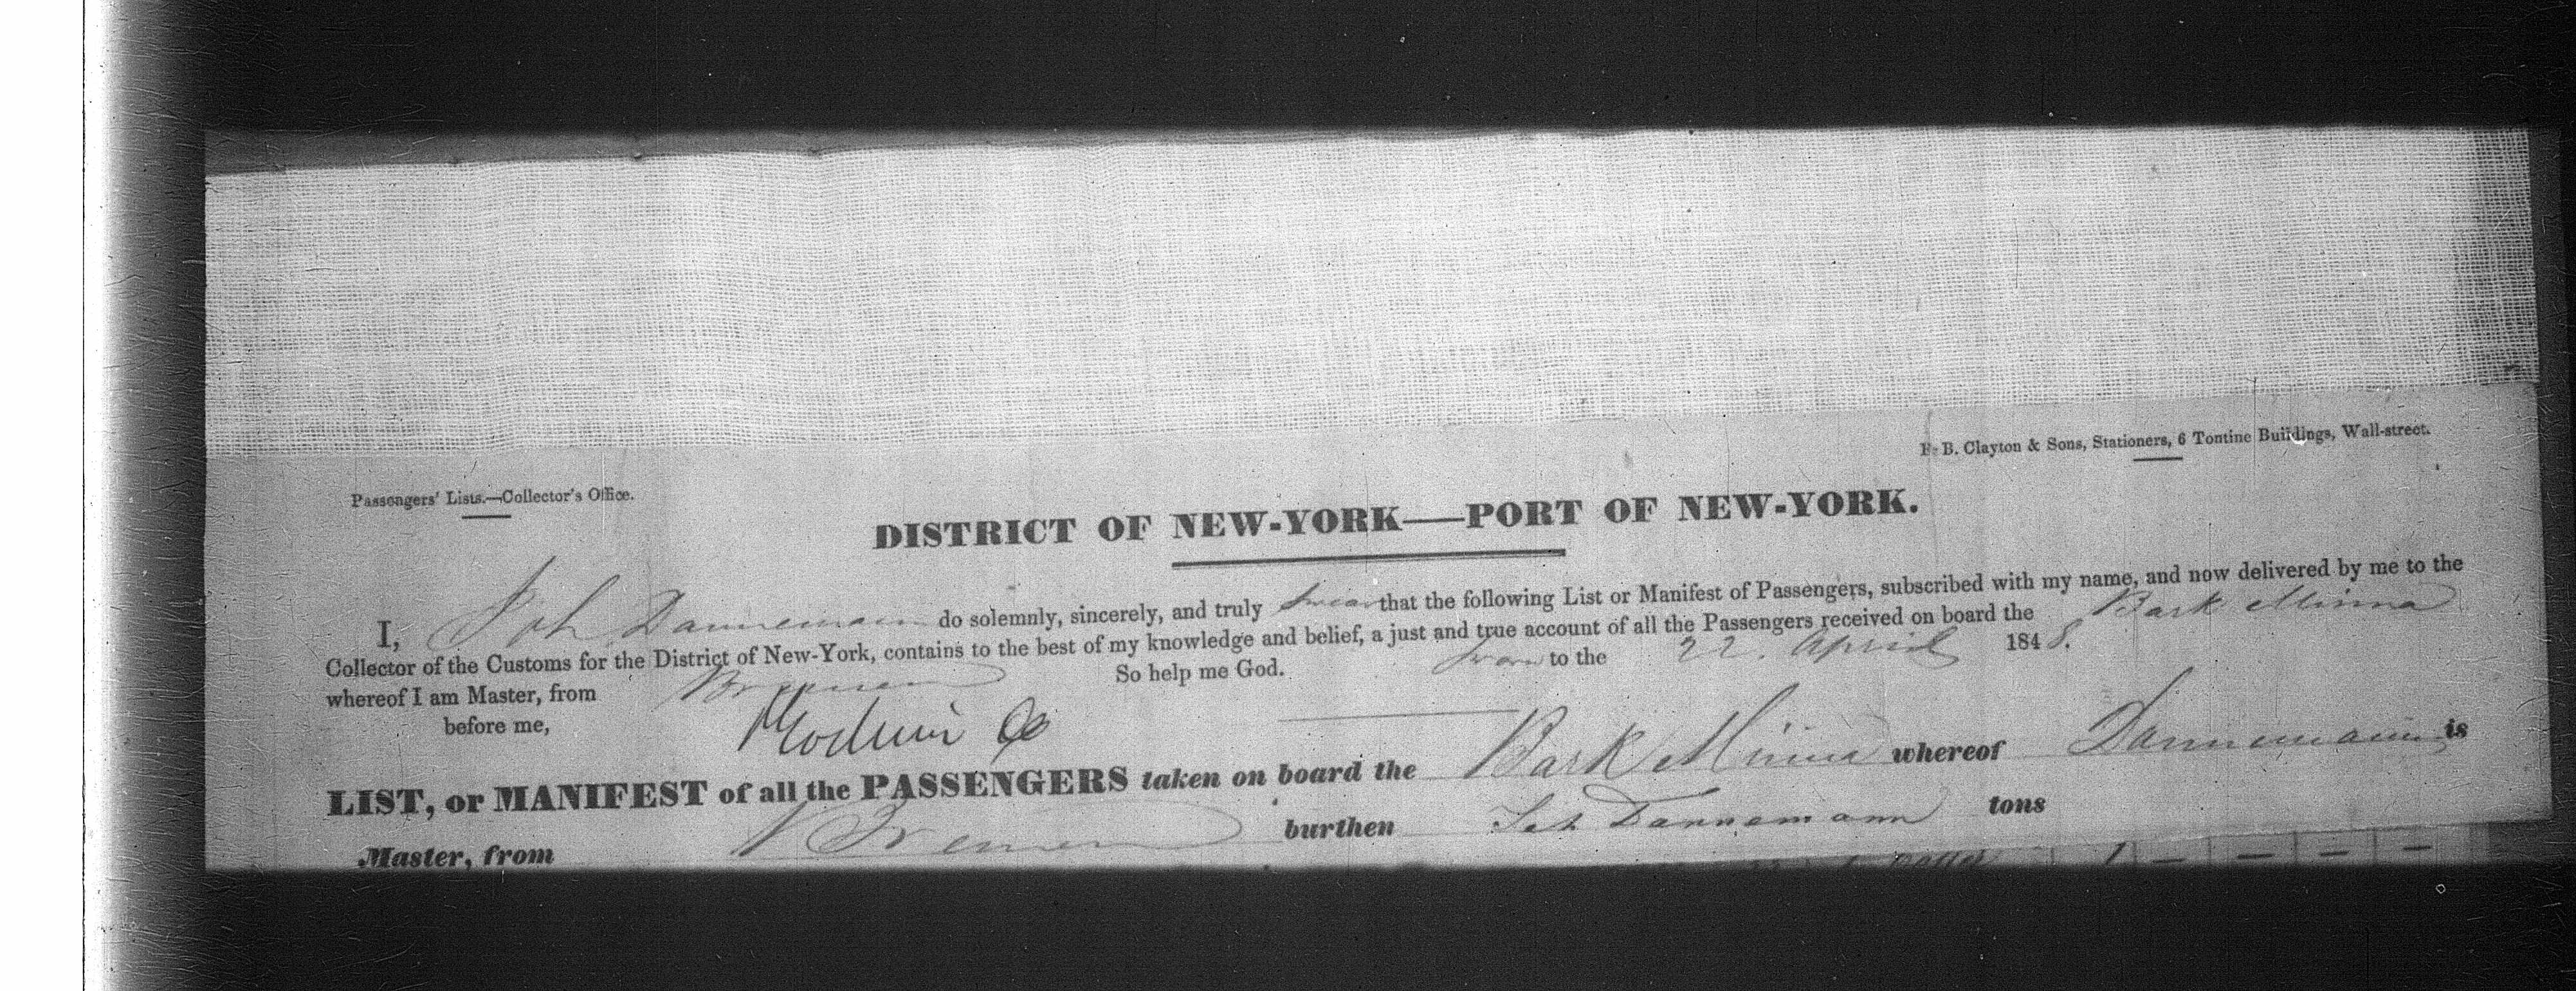 E. B. Clayton & Sons, Stationers, 6 Tontine Buildings, Wall-street.
Passengers' Lists.—Collector's Office.
DISTRICT OF NEW-YORK—PORT OF NEW-YORK.
I, Joh Dannemann do solemnly, sincerely, and truly swear that the following List or Manifest of Passengers, subscribed with my name, and now delivered by me to the
Collector of the Customs for the District of New-York, contains to the best of my knowledge and belief, a just and true account of all the Passengers received on board the Bark Minna
whereof I am Master, from Bremen So help me God. Sworn to the 22. April 1848.
before me,
LIST, or MANIFEST of all the PASSENGERS taken on board the Bark Minna whereof Dannemann is
Master, from Bremen burthen Joh Dannemann tons